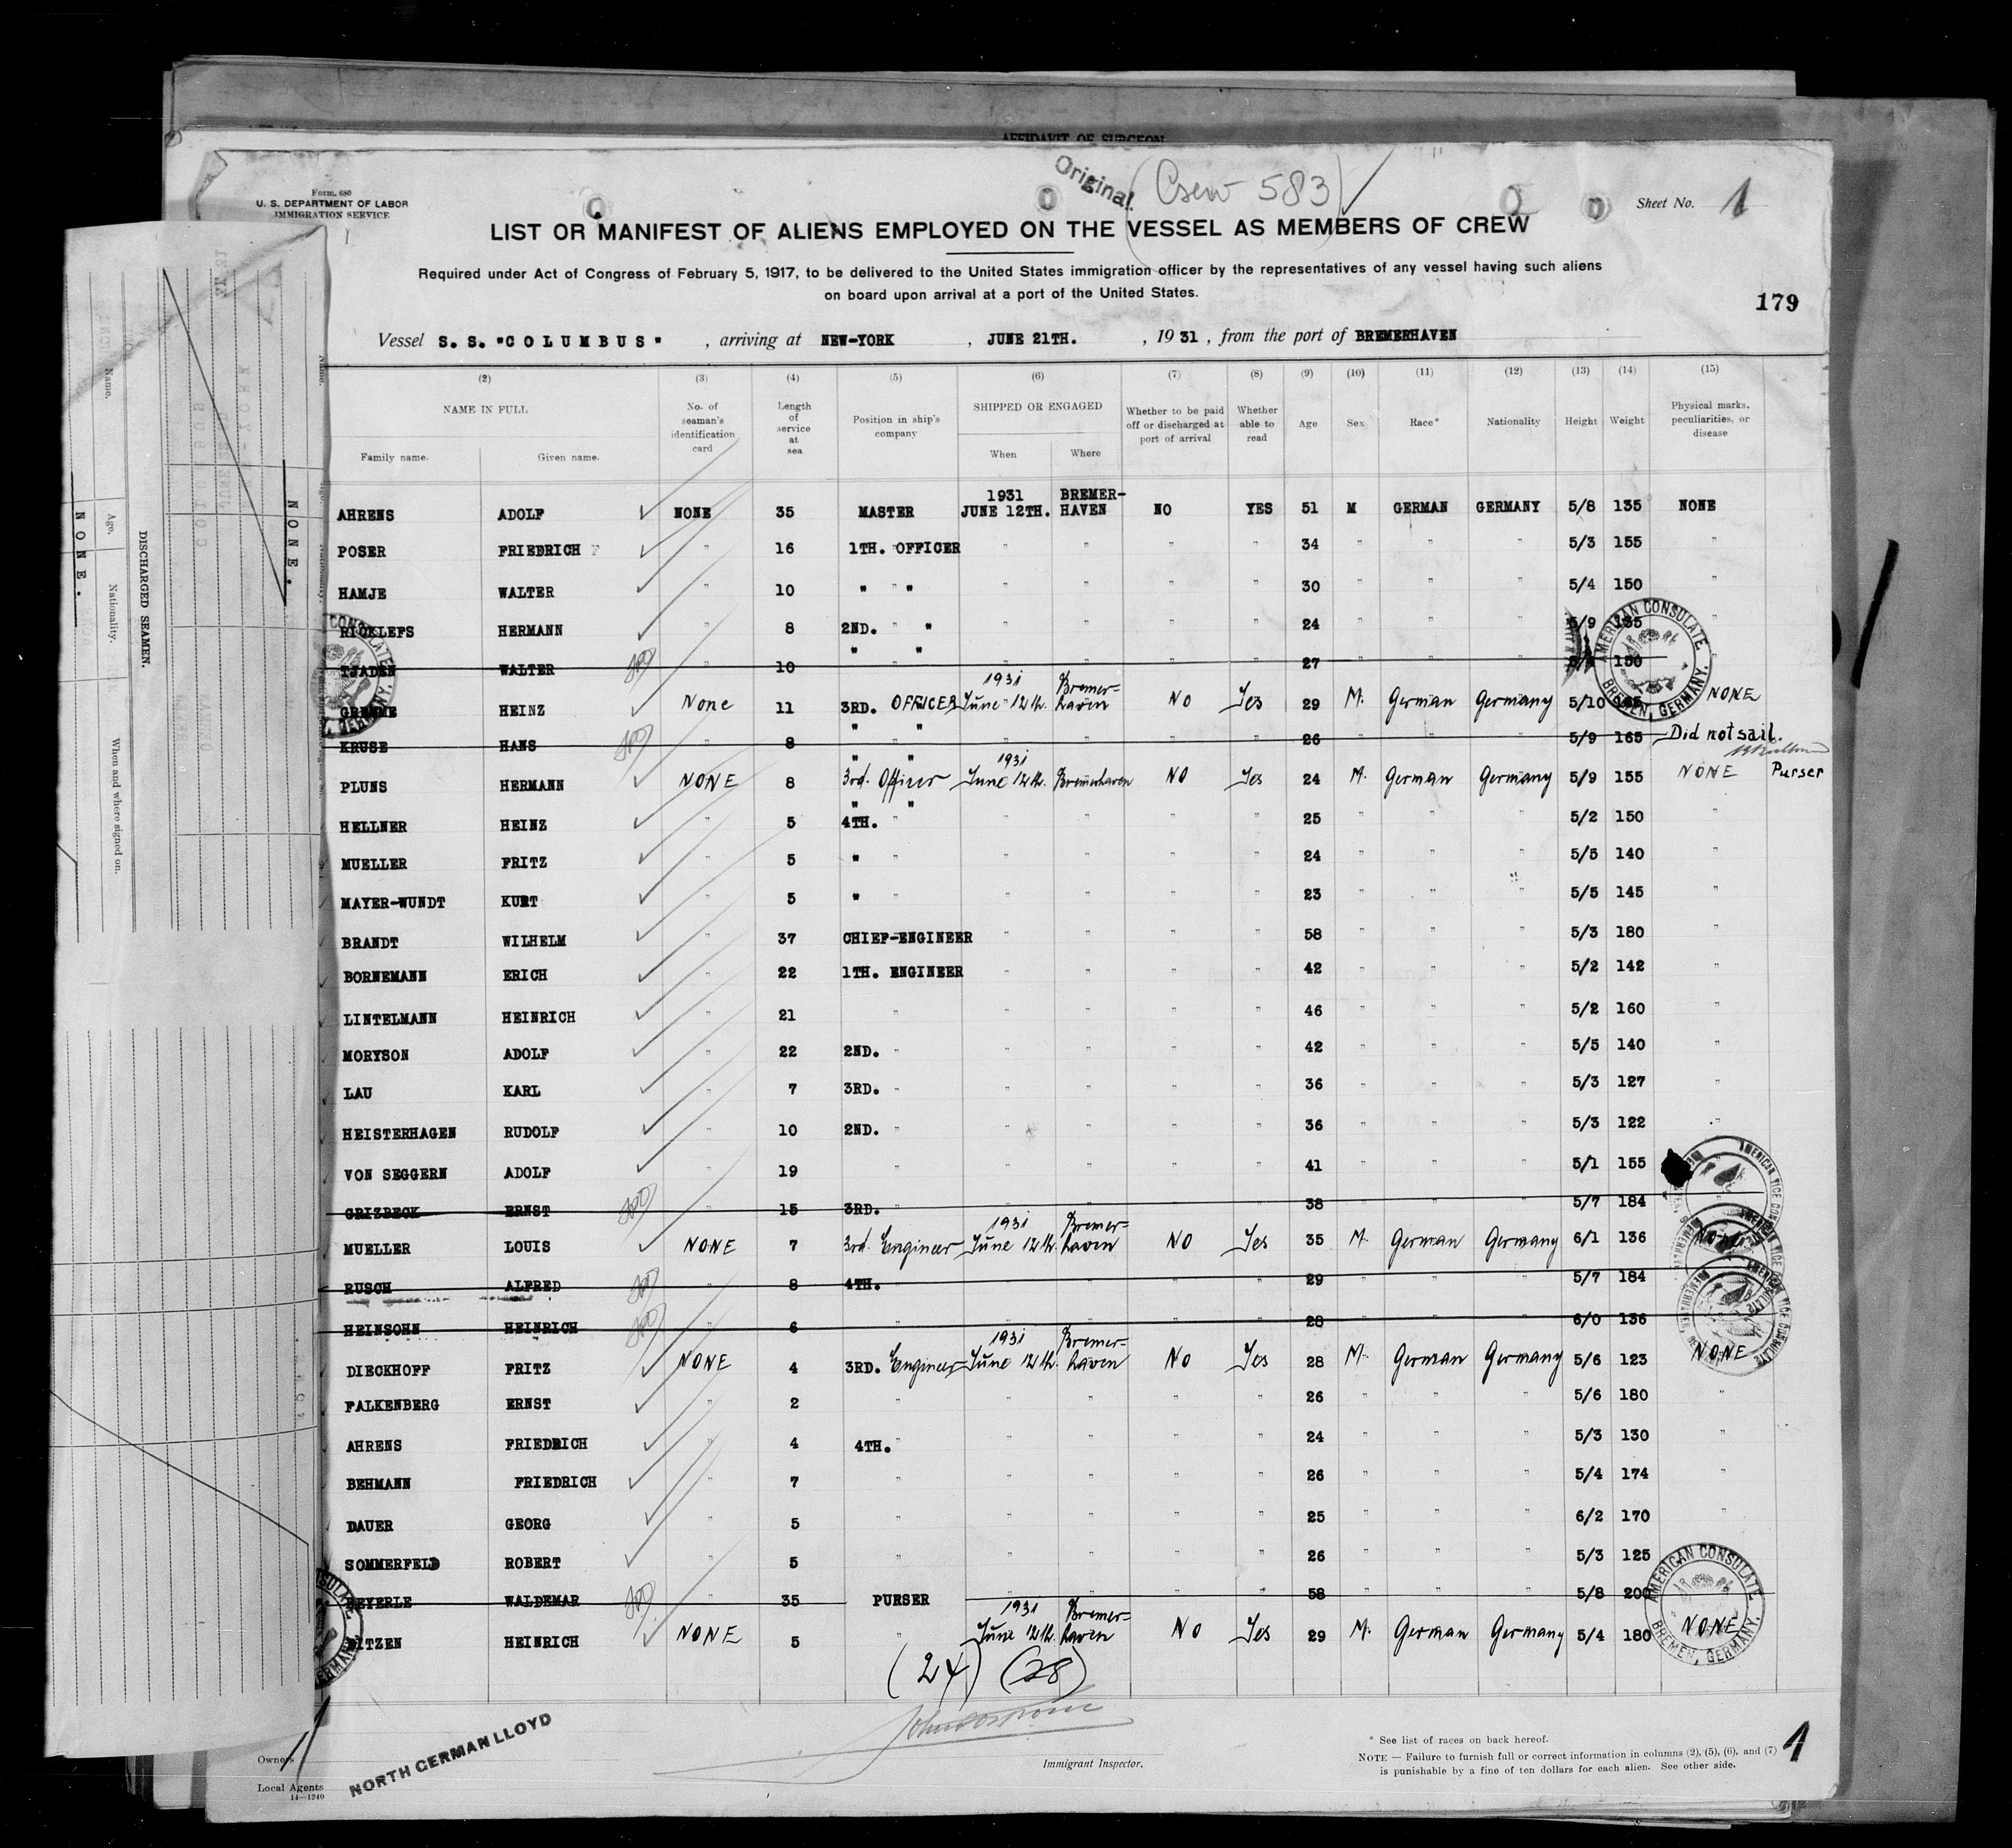 AFFIDAVIT OF SURGEON
Form. 680
U. S. DEPARTMENT OF LABOR
IMMIGRATION SERVICE
Original.
(Crew 583)
Sheet No. 1
LIST OR MANIFEST OF ALIENS EMPLOYED ON THE VESSEL AS MEMBERS OF CREW
Required under Act of Congress of February 5, 1917, to be delivered to the United States immigration officer by the representatives of any vessel having such aliens
on board upon arrival at a port of the United States.
179
Vessel S. S. "COLUMBUS" , arriving at NEW-YORK , JUNE 21TH. , 1931 , from the port of BREMERHAVEN
(2) (3) (4) (5) (6) (7) (8) (9) (10) (11) (12) (13) (14) (15)
NAME IN FULL
Family name. Given name.
No. of seaman's identification card
Length of service at sea
Position in ship's company
SHIPPED OR ENGAGED
When Where
Whether to be paid off or discharged at port of arrival
Whether able to read
Age Sex Race* Nationality Height Weight
Physical marks, peculiarities, or disease
1931 BREMER-
AHRENS ADOLF NONE 35 MASTER JUNE 12TH. HAVEN NO YES 51 M GERMAN GERMANY 5/8 135 NONE
POSER FRIEDRICH F " 16 1TH. OFFICER " " " " 34 " " " 5/3 155 "
HAMJE WALTER " 10 " " " " " " 30 " " " 5/4 150 "
RICKLEFS HERMANN " 8 2ND. " " " " " " 24 " " " 5/9 135 "
TJADEN WALTER " 10 " " " " " " 27 " " " 150 "
1931 Bremer=
HEINZ None 11 3RD. OFFICER June 12th. haven No Yes 29 M. German Germany 5/10 NONE
KRUSE HANS " 8 " " " " " " 26 " " " 5/9 165 Did not sail.
1931
PLUNS HERMANN NONE 8 3rd. Officer June 12th. Bremerhaven NO Yes 24 M. German Germany 5/9 155 NONE Purser
HELLNER HEINZ " 5 4TH. " " " " " 25 " " " 5/2 150 "
MUELLER FRITZ " 5 " " " " " " 24 " " " 5/5 140 "
MAYER-WUNDT KURT " 5 " " " " " " 23 " " " 5/5 145 "
BRANDT WILHELM " 37 CHIEF-ENGINEER " " " " 58 " " " 5/3 180 "
BORNEMANN ERICH " 22 1TH. ENGINEER " " " " 42 " " " 5/2 142 "
LINTELMANN HEINRICH " 21 " " " " " 46 " " " 5/2 160 "
MORYSON ADOLF " 22 2ND. " " " " " 42 " " " 5/5 140 "
LAU KARL " 7 3RD. " " " " " 36 " " " 5/3 127 "
HEISTERHAGEN RUDOLF " 10 2ND. " " " " " 36 " " " 5/3 122 "
VON SEGGERN ADOLF " 19 " " " " " 41 " " " 5/1 155 "
GRIZBECK ERNST " 15 3RD. " " " " " 38 " " " 5/7 184 "
1931 Bremer=
MUELLER LOUIS NONE 7 3rd. Engineer June 12th. haven NO Yes 35 M. German Germany 6/1 136 NONE
RUSCH ALFRED " 8 4TH. " " " " 29 " " " 5/7 184
HEINSOHN HEINRICH " 6 " " " " " 28 " " " 6/0 136
1931 Bremer=
DIECKHOFF FRITZ NONE 4 3RD. Engineer June 12th. haven No Yes 28 M. German Germany 5/6 123 NONE
FALKENBERG ERNST " 2 " " " " " 26 " " " 5/6 180 "
AHRENS FRIEDRICH " 4 4TH. " " " " " 24 " " " 5/3 130 "
BEHMANN FRIEDRICH " 7 " " " " " 26 " " " 5/4 174 "
DAUER GEORG " 5 " " " " " 25 " " " 6/2 170 "
SOMMERFELD ROBERT " 5 " " " " " 26 " " " 5/3 125
BEYERLE WALDEMAR " 35 PURSER " " " " 58 " " " 5/8 200
1931 Bremer=
HEINRICH NONE 5 " June 12th. haven No Yes 29 M. German Germany 5/4 180 NONE
(24) (28)
AMERICAN CONSULATE
BREMEN, GERMANY.
AMERICAN CONSULATE
BREMEN, GERMANY.
Immigrant Inspector.
Owners
Local Agents
14—1240
NORTH GERMAN LLOYD
* See list of races on back hereof.
NOTE — Failure to furnish full or correct information in columns (2), (5), (6), and (7)
is punishable by a fine of ten dollars for each alien. See other side.
1
DISCHARGED SEAMEN.
Name. Age. Nationality. When and where signed on.
NONE.
NONE.